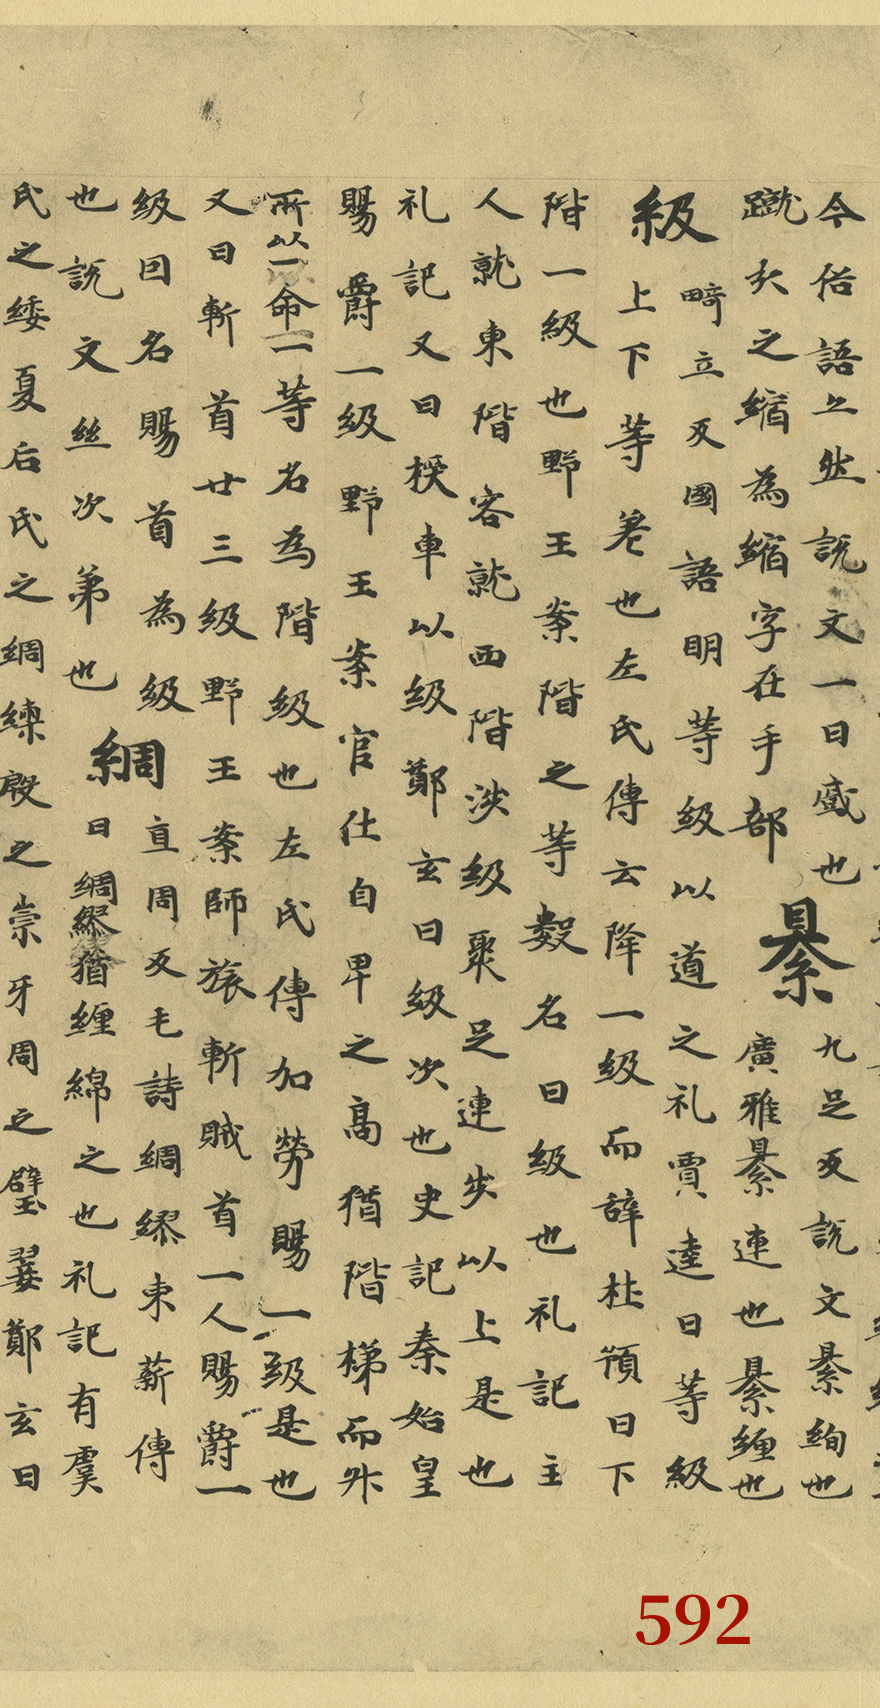 今俗語亦然說文一曰蹙也
蹴犬之縮為縮字在手部
綦
九足反說文綦絇也
廣雅綦連也綦纏也
級
畸立反國語明等級以道之礼賈逵曰等級
上下等差也左氏傳云降一級而辞杜預曰下
階一級也野王案階之等數名曰級也礼記主
人就東階客就西階涉級聚足連步以上是也
礼記又曰授車以級鄭玄曰級次也史記秦始皇
賜爵一級野王案官仕自卑之高猶階梯而升
所以一命一等名為階級也左氏傳加勞賜一級是也
又曰斬首廿三級野王案師旅斬賊首一人賜爵一
級因名賜首為級
也說文絲次弟也
綢
直周反毛詩綢繆束薪傳
曰綢繆猶纏綿之也礼記有虞
氏之緌夏后氏之綢練殷之崇牙周之璧翣鄭玄曰
592